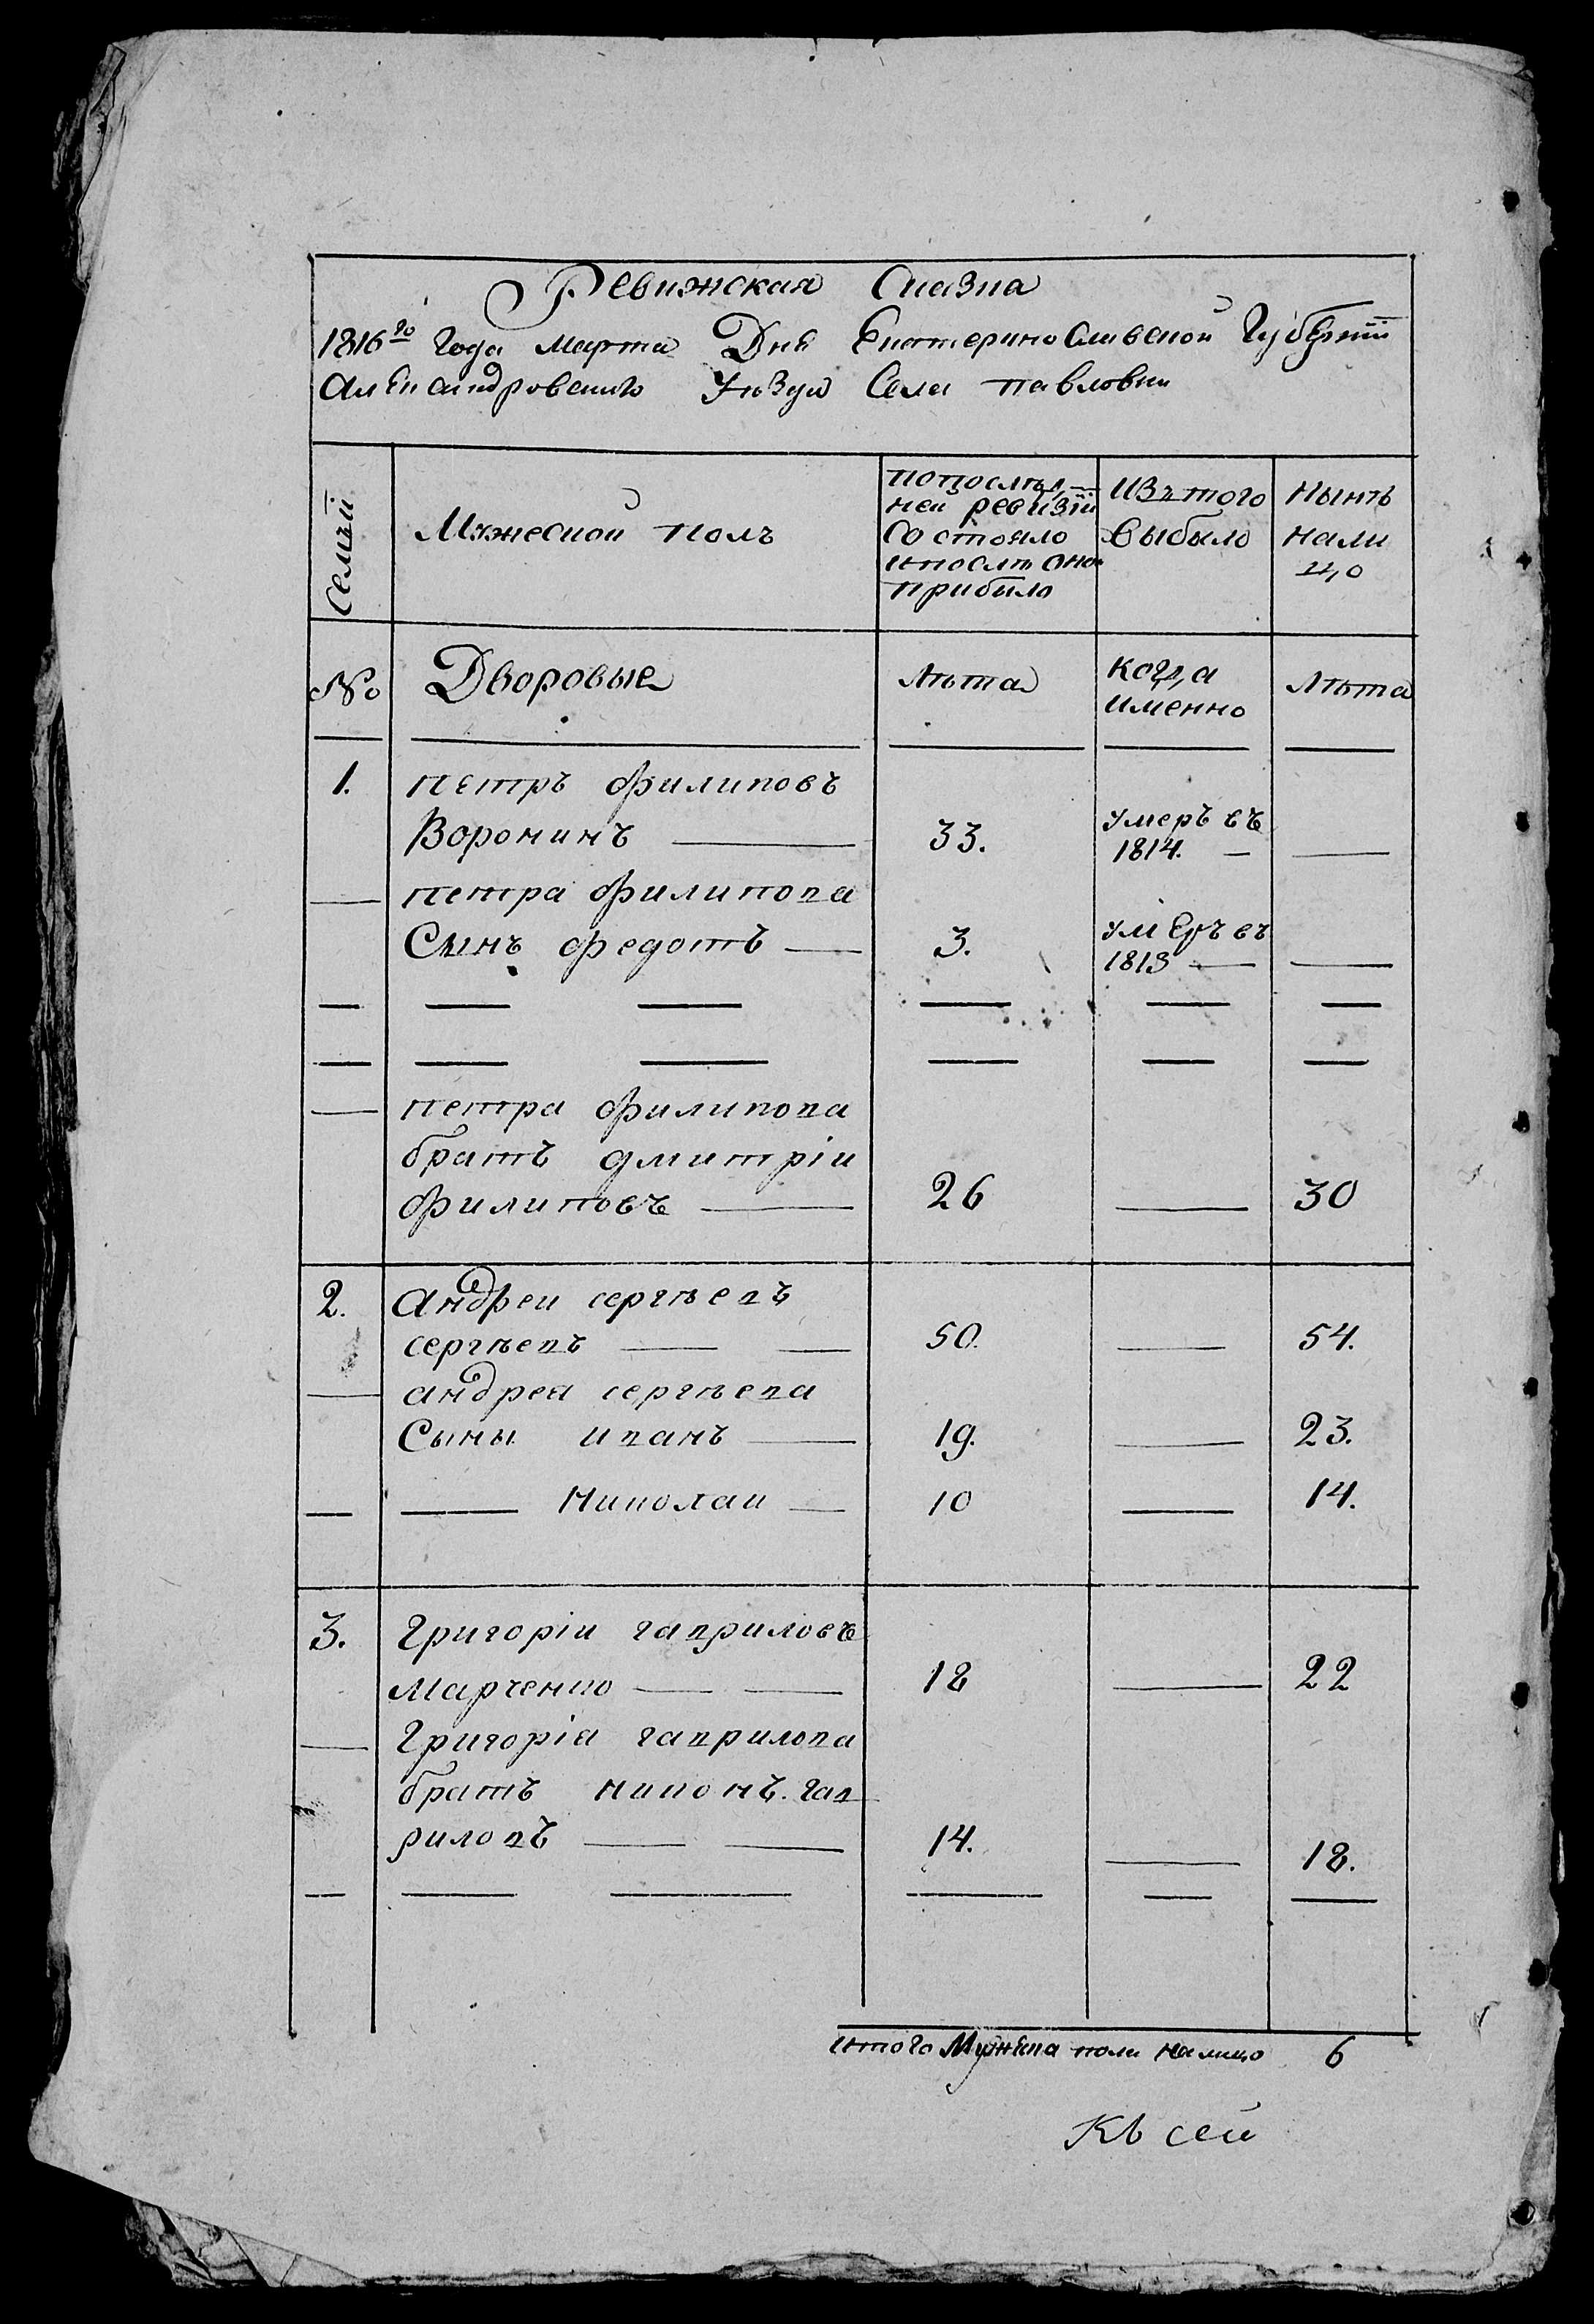 Ревижская Сказка
1816го Года Марта Дня Екатеринославской Губерніи
Александровскаго Уѣзда Села Павловки
Семьи
Мужеской полъ
По послѣд
ней ревизіи
состояло
и послѣ оно
прибыло
Изъ того
выбыло
Нынѣ
нали
цо
№
Дворовые
Лѣта
Когда
именно
Лѣта
1.
петръ филиповъ
Воронинъ
33.
умеръ въ
1814.
петра филипова
Сынъ федотъ
3.
умеръ въ
1813
петра филипова
братъ дмитріи
филиповъ
26
30
2.
Андреи сергѣевъ
сергѣевъ
50.
54.
андрея сергѣева
Сыны иванъ
19.
23.
николаи
10
14.
3.
Григоріи гавриловъ
Марченко
18
22
Григорія гаврилова
братъ никонъ гав
риловъ
14.
18.
итого Мужска пола налицо 6
Къ сей